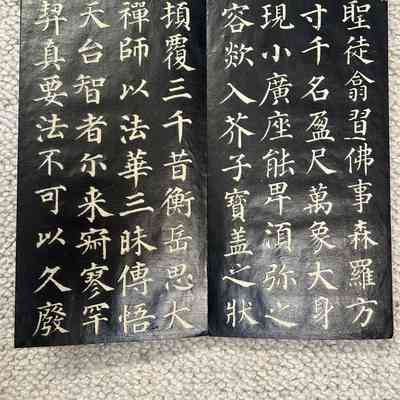 聖徒翕習佛事森羅方
寸千名盈尺萬象大身
現小廣座能卑須弥之
容欻入芥子寶盖之狀
頓覆三千昔衡岳思大
禪師以法華三昧傳悟
天台智者尒来寂寥罕
契真要法不可以久廢